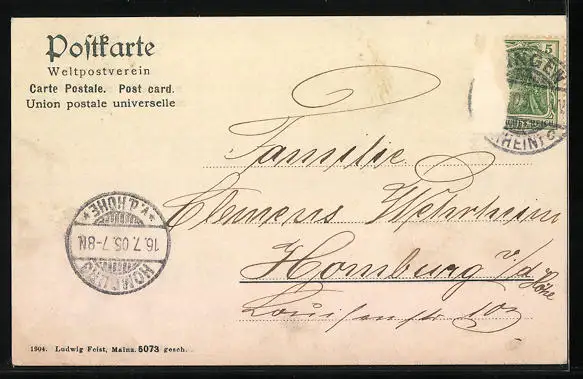 Postkarte
Weltpostverein
Carte Postale. Post card.
Union postale universelle
5
INGEN
RHEIN
Familie
Clemens Wehrheim
Homburg v/d Höhe
Louisenstr 102
HOMBURG
v.d.HÖHE
16.7.05.7-8N.
1904. Ludwig Feist, Mainz. 5073 gesch.